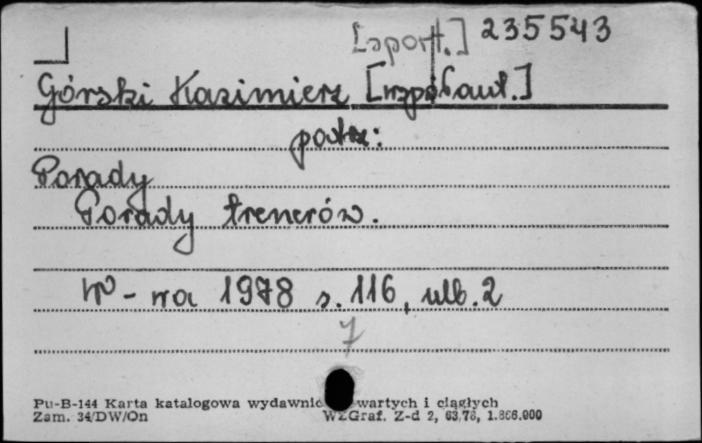 [sport.] 235543
Górski Kazimierz [współaut.]
patrz:
Porady
Porady trenerów.
W-wa 1978 s. 116, nlb. 2
7
Pu-B-144 Karta katalogowa wydawnic wartych i ciągłych
Zam. 34/DW/On WZGraf. Z-d 2,